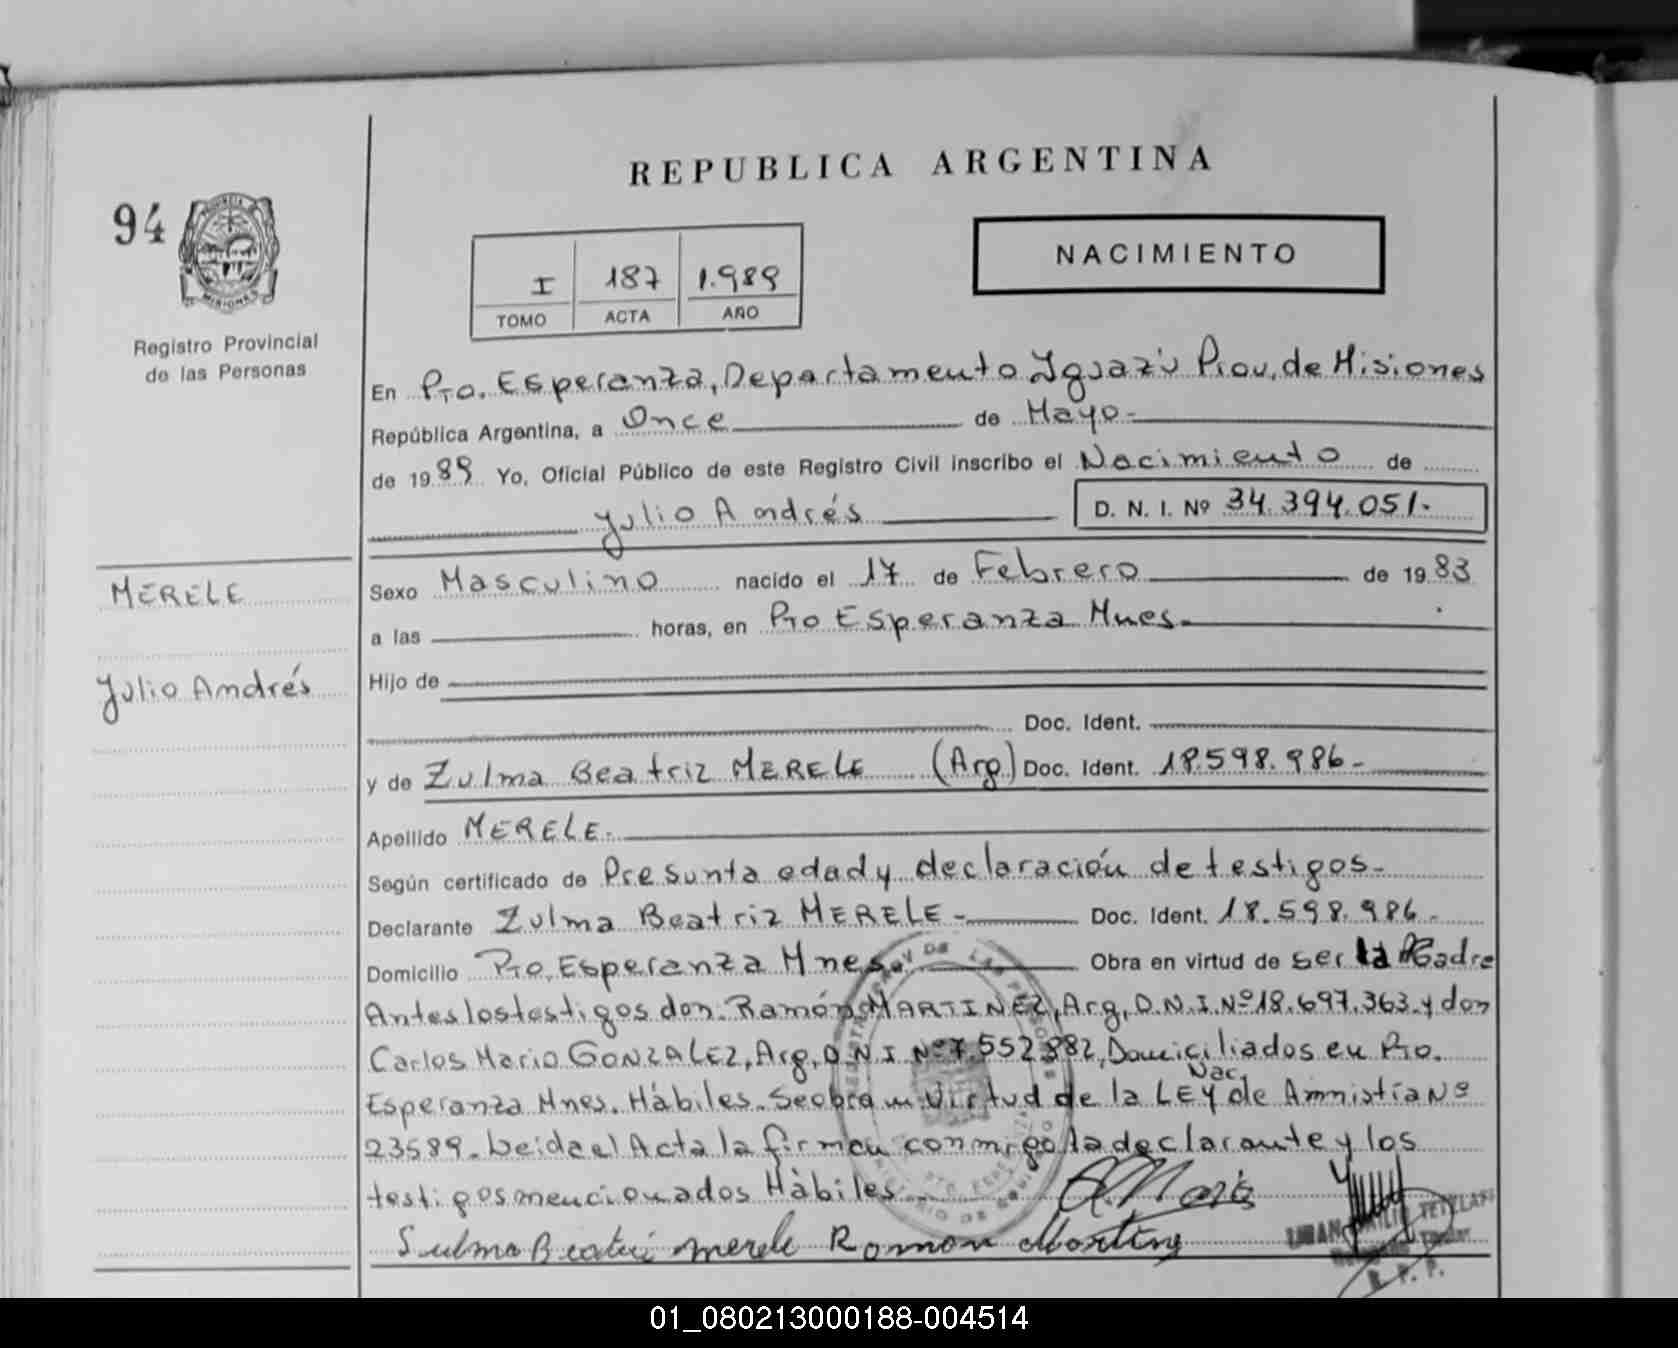 REPUBLICA ARGENTINA
94
PROVINCIA
MISIONES
Registro Provincial
de las Personas
I 187 1.989
TOMO ACTA AÑO
NACIMIENTO
En Pto. Esperanza, Departamento Iguazú Prov. de Misiones
República Argentina, a Once de Mayo-
de 1989 Yo, Oficial Público de este Registro Civil inscribo el Nacimiento de
Julio Andrés D. N. I. Nº 34.394.051.
MERELE
Julio Andrés
Sexo Masculino nacido el 17 de Febrero de 1983
a las horas, en Pto Esperanza Mnes.
Hijo de
Doc. Ident.
y de Zulma Beatriz MERELE (Arg) Doc. Ident. 18.598.986-
Apellido MERELE.
Según certificado de Presunta edad y declaración de testigos-
Declarante Zulma Beatriz MERELE- Doc. Ident. 18.598.986-
Domicilio Pto. Esperanza Mnes. Obra en virtud de ser la Madre
Antes los testigos don. Ramón MARTINEZ, Arg, D.N.I. Nº 18.697.363. y don
Carlos Mario GONZALEZ, Arg, D.N.I Nº 7.552.882, Domiciliados en Pto.
Esperanza Mnes. Hábiles. Se obra en Virtud de la LEY Nac. de Amnistía Nº
23589. Leida el Acta la firman conmigo la declarante y los
testigos mencionados Hàbiles
Sulma Beatriz merele Ramon Martinez
R. P. P.
01_080213000188-004514